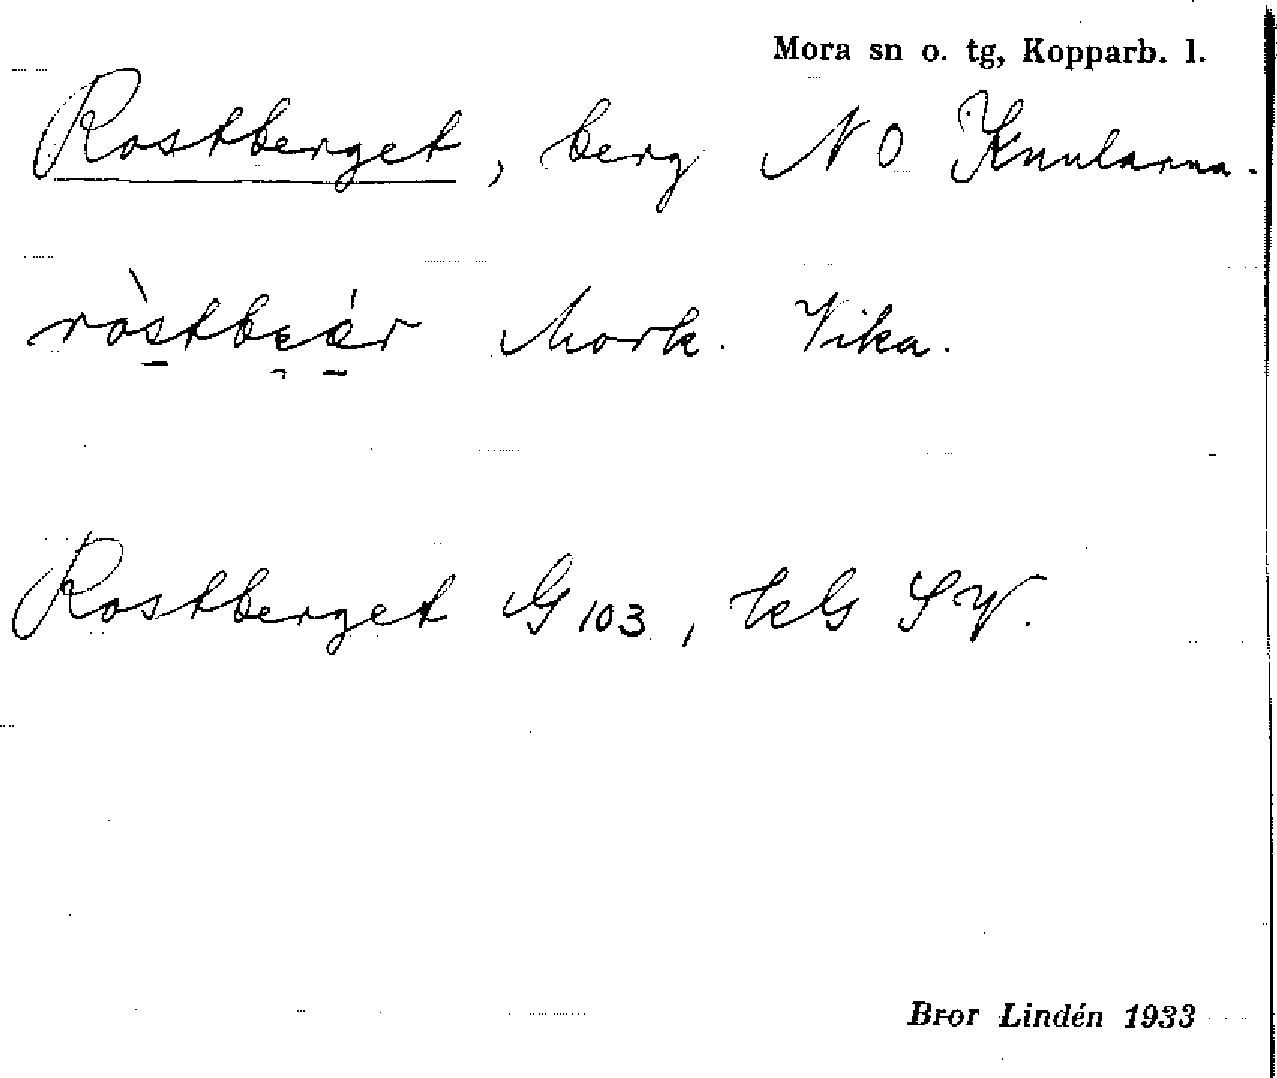 Mora sn o. tg, Kopparb. l.
Rostberget, berg N O Knularna.
Mork. Vika.
Rostberget G 103, SV.
Bror Lindén 1933